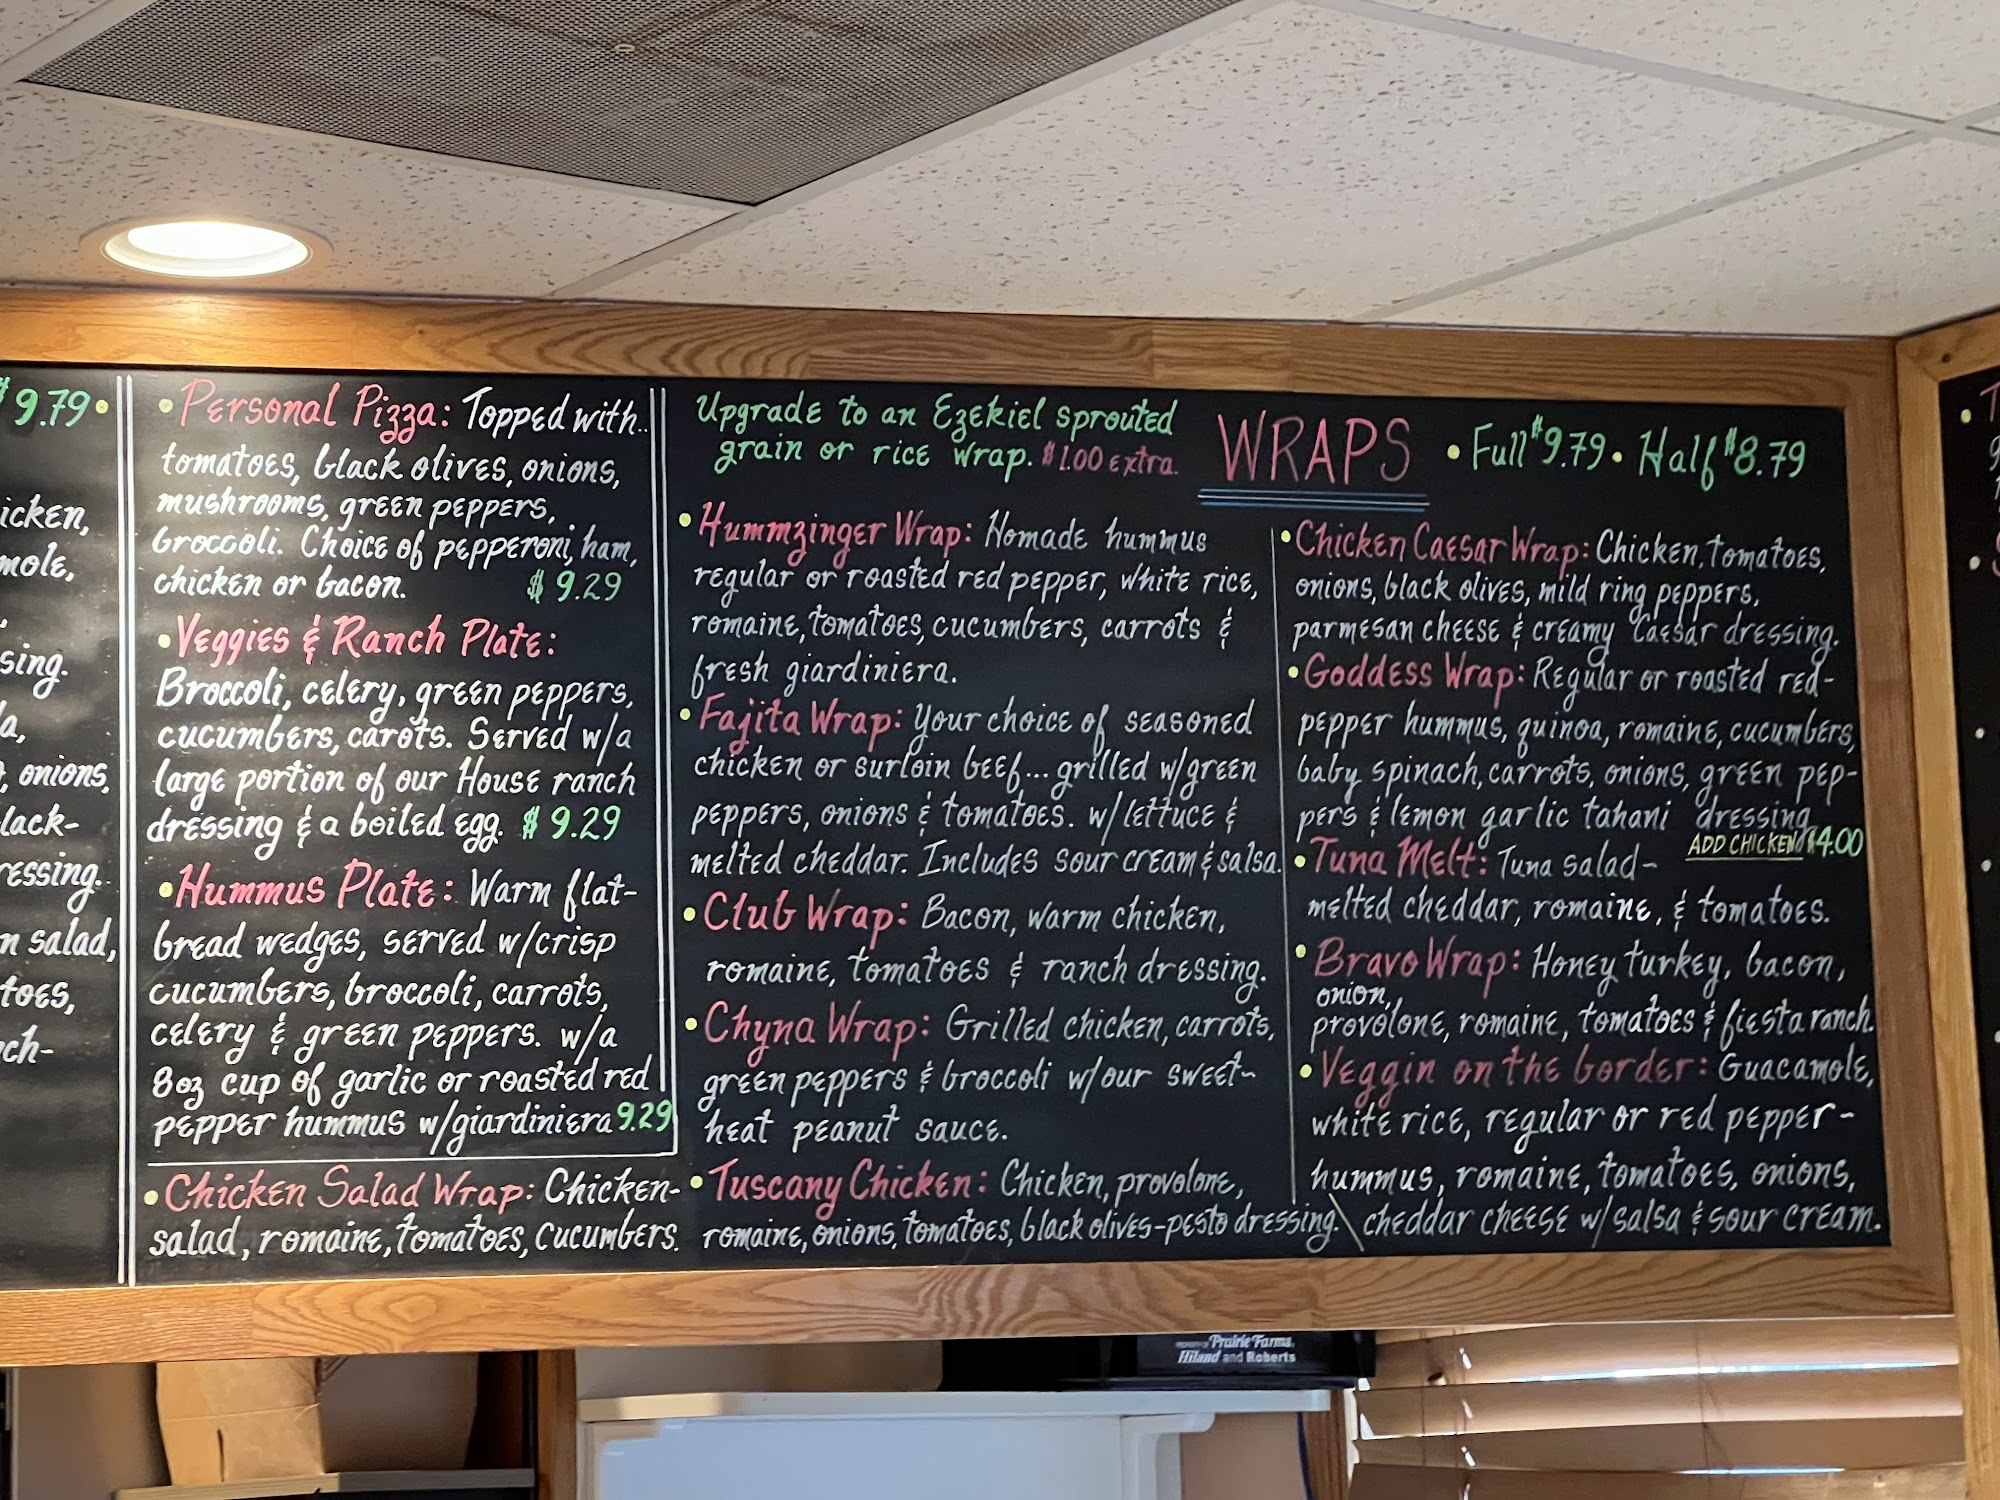 $9.79 •
icken,
mole,
sing.
a,
, onions,
lack-
ressing.
n salad,
toes,
ch-
• Personal Pizza: Topped with..
tomatoes, black olives, onions,
mushrooms, green peppers,
broccoli. Choice of pepperoni, ham,
chicken or bacon. $9.29
• Veggies & Ranch Plate:
Broccoli, celery, green peppers,
cucumbers, carots. Served w/a
large portion of our House ranch
dressing & a boiled egg. $9.29
• Hummus Plate: Warm flat-
bread wedges, served w/crisp
cucumbers, broccoli, carrots,
celery & green peppers. w/a
8oz cup of garlic or roasted red
pepper hummus w/giardiniera 9.29
• Chicken Salad Wrap: Chicken-
salad, romaine, tomatoes, cucumbers.
Upgrade to an Ezekiel sprouted
grain or rice wrap. $1.00 extra.
WRAPS • Full $9.79 • Half $8.79
• Hummzinger Wrap: Homade hummus
regular or roasted red pepper, white rice,
romaine, tomatoes, cucumbers, carrots &
fresh giardiniera.
• Fajita Wrap: Your choice of seasoned
chicken or surloin beef... grilled w/green
peppers, onions & tomatoes. w/lettuce &
melted cheddar. Includes sour cream & salsa.
• Club Wrap: Bacon, warm chicken,
romaine, tomatoes & ranch dressing.
• Chyna Wrap: Grilled chicken, carrots,
green peppers & broccoli w/our sweet-
heat peanut sauce.
• Tuscany Chicken: Chicken, provolone,
romaine, onions, tomatoes, black olives-pesto dressing.
• Chicken Caesar Wrap: Chicken, tomatoes,
onions, black olives, mild ring peppers,
parmesan cheese & creamy Caesar dressing.
• Goddess Wrap: Regular or roasted red-
pepper hummus, quinoa, romaine, cucumbers,
baby spinach, carrots, onions, green pep-
pers & lemon garlic tahani dressing
ADD CHICKEN $4.00
• Tuna Melt: Tuna salad-
melted cheddar, romaine, & tomatoes.
• Bravo Wrap: Honey turkey, bacon,
onion,
provolone, romaine, tomatoes & fiesta ranch.
• Veggin on the border: Guacamole,
white rice, regular or red pepper-
hummus, romaine, tomatoes, onions,
cheddar cheese w/salsa & sour cream.
Prairie Farms,
Hiland and Roberts